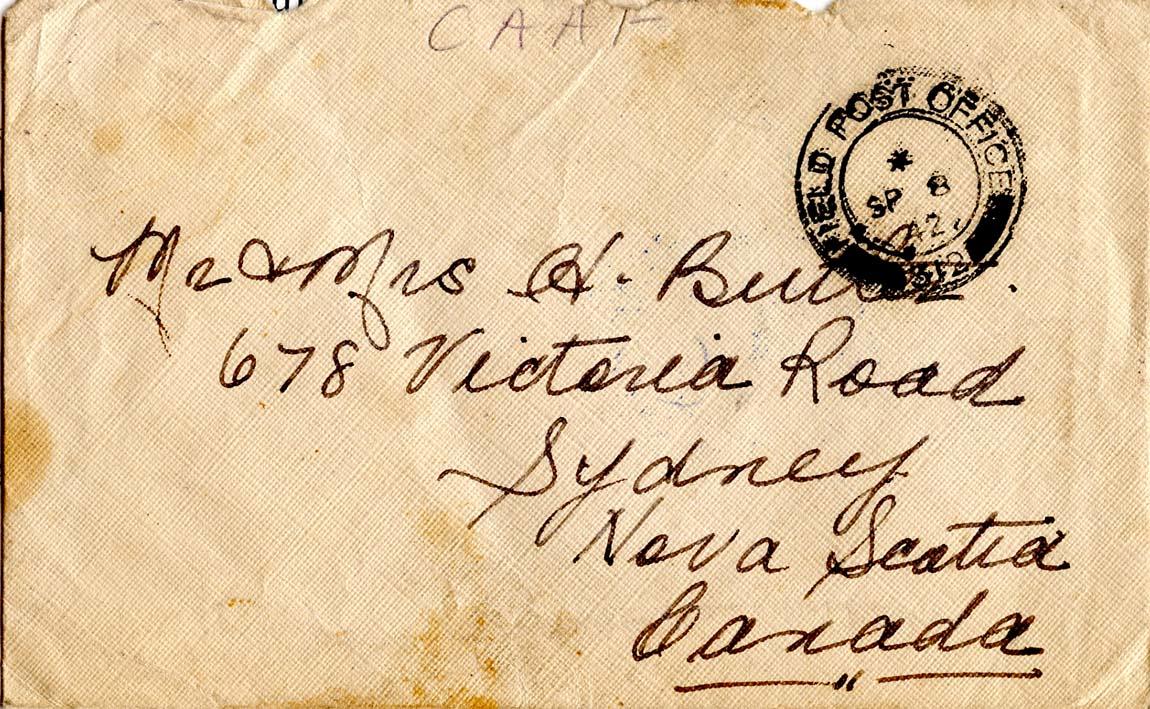 CAAF
FIELD POST OFFICE
*
SP 8
42
512
Mr & Mrs H. Butler.
678 Victoria Road
Sydney
Nova Scotia
Canada